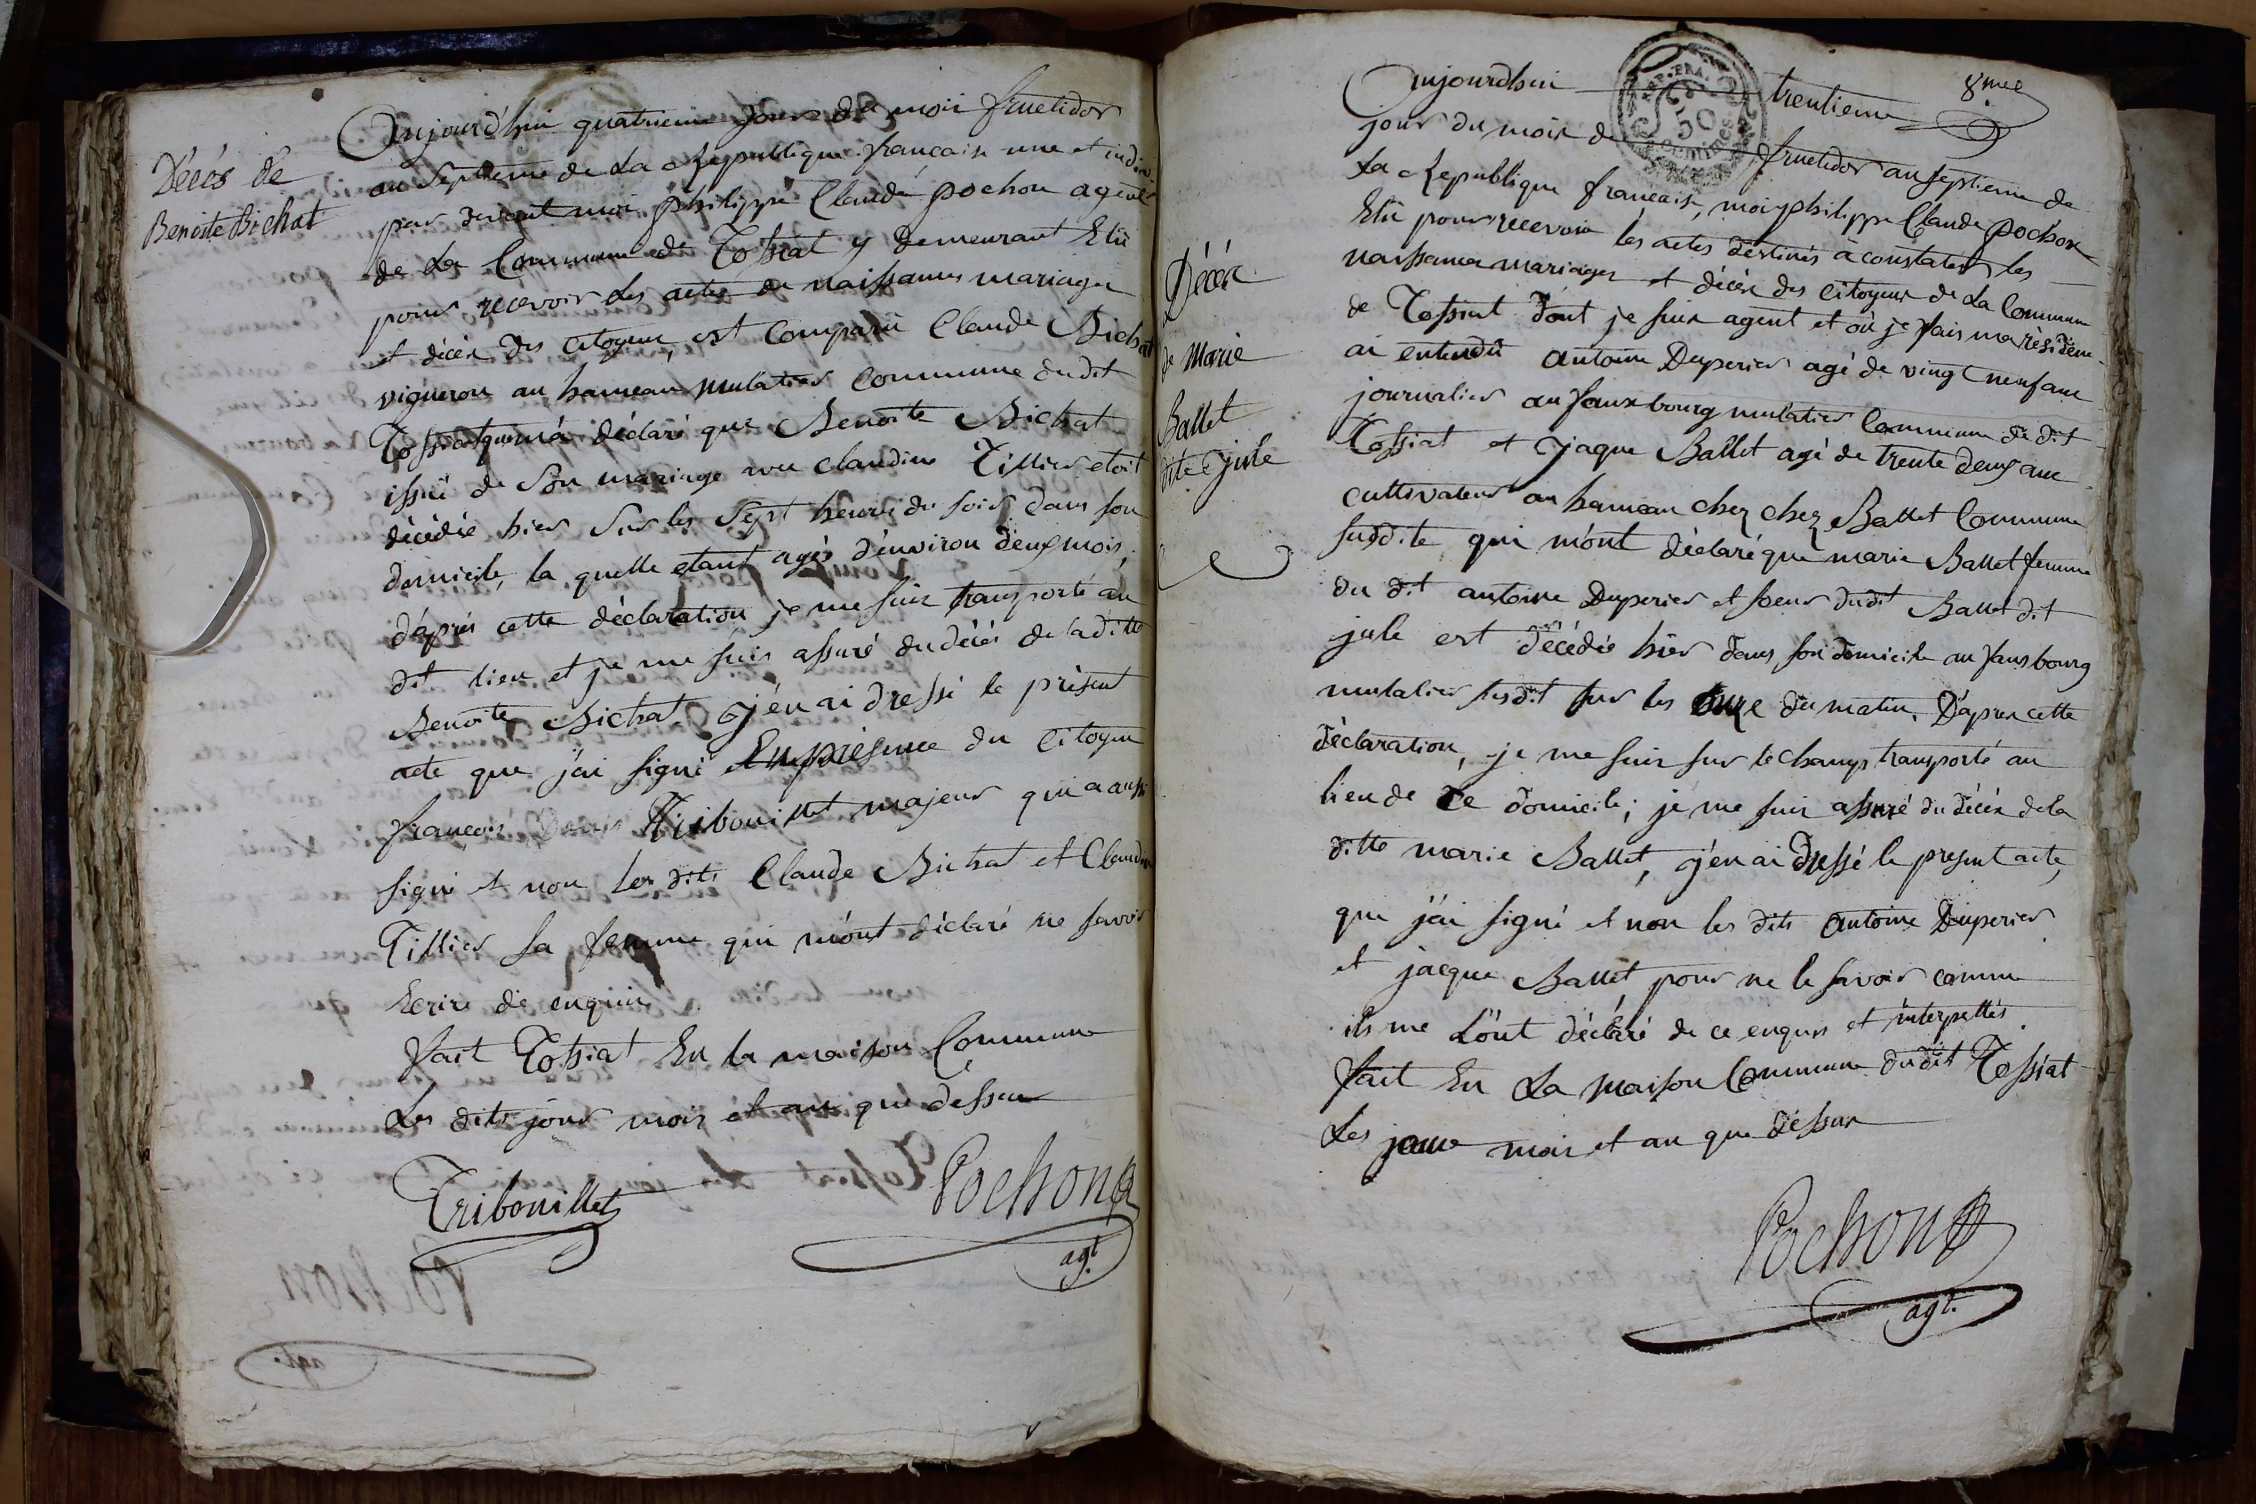 Décès de
Benoite Bichat
Aujourd'hui quatrieme jour du mois fructidor
an septieme de la République française une et indiv.
par devant moi philippe Claude pochon agent
de la Commune de Tossiat y demeurant Elû
pour recevoir les actes de naissances mariages
et décès des citoyens, est comparû Claude Bichat
vigneron au hameau mulatier commune du dit
Tossiat qui m'a déclaré que Benoite Bichat
issüe de son mariage avec claudine Tillier etoit
décédée hier sur les sept heures du soir dans son
domicile, la quelle etant agée d'environ deux mois,
d'après cette déclaration je me suis transporté au
dit lieu et je me suis assuré du décès de la ditte
Benoite Bichat j'en ai dressé le présent
acte que j'ai signé En présence du citoyen
françois Tribouillet majeur qui a aussi
signé et non les dits Claude Bichat et Claudine
Tillier sa femme qui m'ont déclaré ne savoir
Ecrire de enquis
fait Tossiat En la maison Commune
Les dits jour mois et an que dessus
Tribouillet
Pochon
agt.
8me
REP. FRA.
50
centimes
Décès
de Marie
Ballet
dite Jule
Aujourdhui trentieme
jour du mois de fructidor an septieme de
la République française, moi philippe Claude pochon
Elû pour recevoir les actes destinés à constater les
naissances mariages et décès des citoyens de la Commune
de Tossiat dont je suis agent et où je fais ma résidence
ai entendû antoine Duperier agé de vingt neuf ans
journalier au fauxbourg mulatier Commune du dit
Tossiat et Jaque Ballet agé de trente deux ans
cultivateur au hameau chez chez Ballet Commune
susdite qui m'ont déclaré que marie Ballet femme
du dit antoine Duperier et soeur du dit Ballet dit
jule est décédée hier dans son domicile au fausbourg
mulatier susdit sur les onze du matin. D'apres cette
déclaration, je me suis sur le champs transporté au
lieu de ce domicile; je me suis assuré du décès de la
ditte marie Ballet, j'en ai dressé le present acte,
que j'ai signé et non les dits antoine Duperier
et jacque Ballet pour ne le savoir comme
ils me L'ont déclaré de ce enquis et interpellés
fait En La Maison Commune du dit Tossiat
Les jour mois et an que dessus
Pochon
agt.